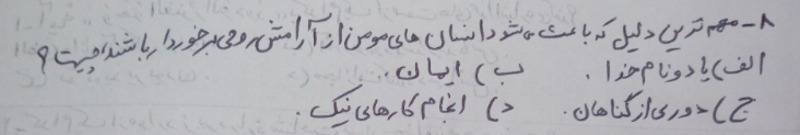 ۸- مهم ترین دلیل که باعث می شود انسان های مومن از آرامش روحی برخوردار باشند، چیست؟
الف) یاد و نام خدا. ب) ایمان.
ج) دوری از گناهان. د) انجام کارهای نیک.